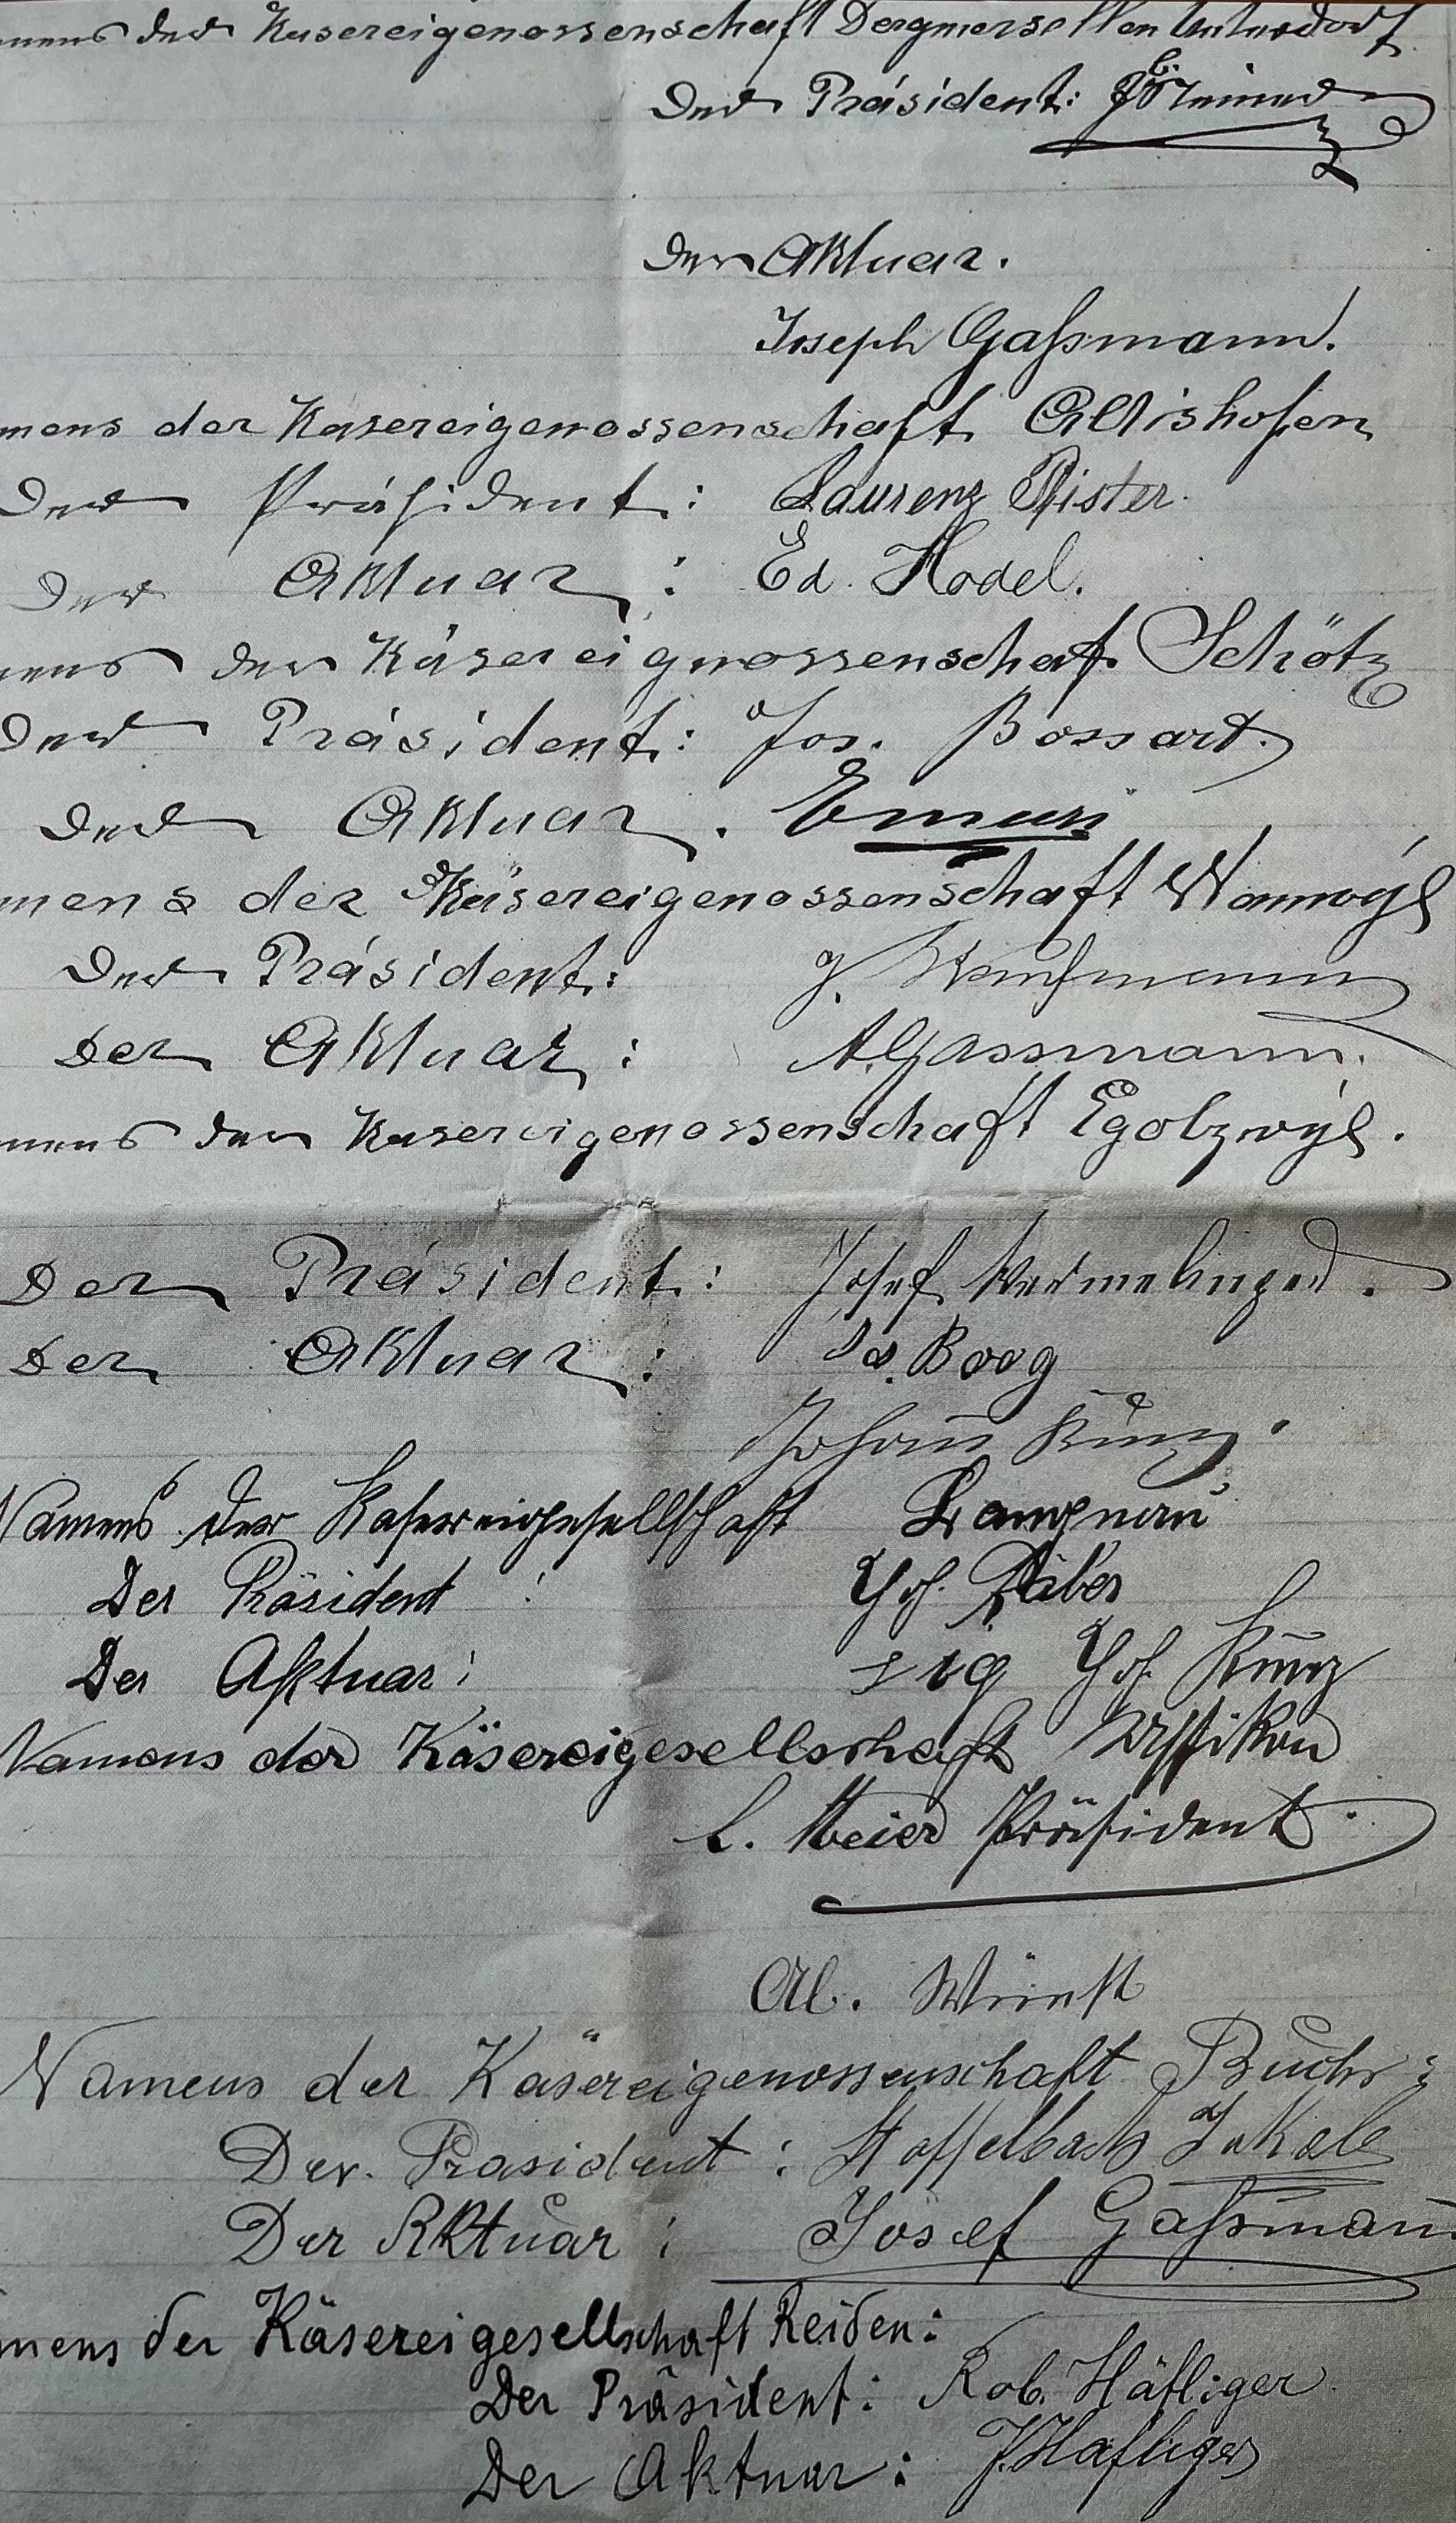 mens der Käsereigenossenschaft Dagmersellen Unterdorf
Der Präsident:
Der Aktuar.
Joseph Gaßmann.
mens der Käsereigenossenschaft Altishofen
Der Präsident: Laurenz Pfister.
Der Aktuar: Ed. Hodel.
mens der Käsereigenossenschaft Schötz
Der Präsident: Jos. Bossart.
Der Aktuar.
mens der Käsereigenossenschaft Wauwyl
Der Präsident: J. Kaufmann
Der Aktuar: A. Gassmann.
mens der Käsereigenossenschaft Egolzwyl.
Der Präsident: Josef Wermelinger.
Der Aktuar: Boog
Johann Kunz.
Namens der Käsereigesellschaft Langnau
Der Präsident: Joh. Räber
Der Aktuar: sig Joh Kunz
Namens der Käsereigesellschaft Uffikon
L. Meier Präsident.
Al. Wüest
Namens der Käsereigenossenschaft Buchs:
Der. Präsident: Stoffelbach Jakob
Der Aktuar: Josef Gaßmann
mens der Käsereigesellschaft Reiden:
Der Präsident: Rob. Häfliger
Der Aktuar: J. Häfliger